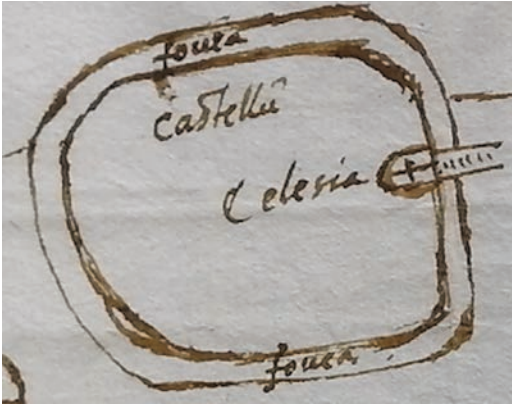 fouea
Castellū
Celesia
fouea